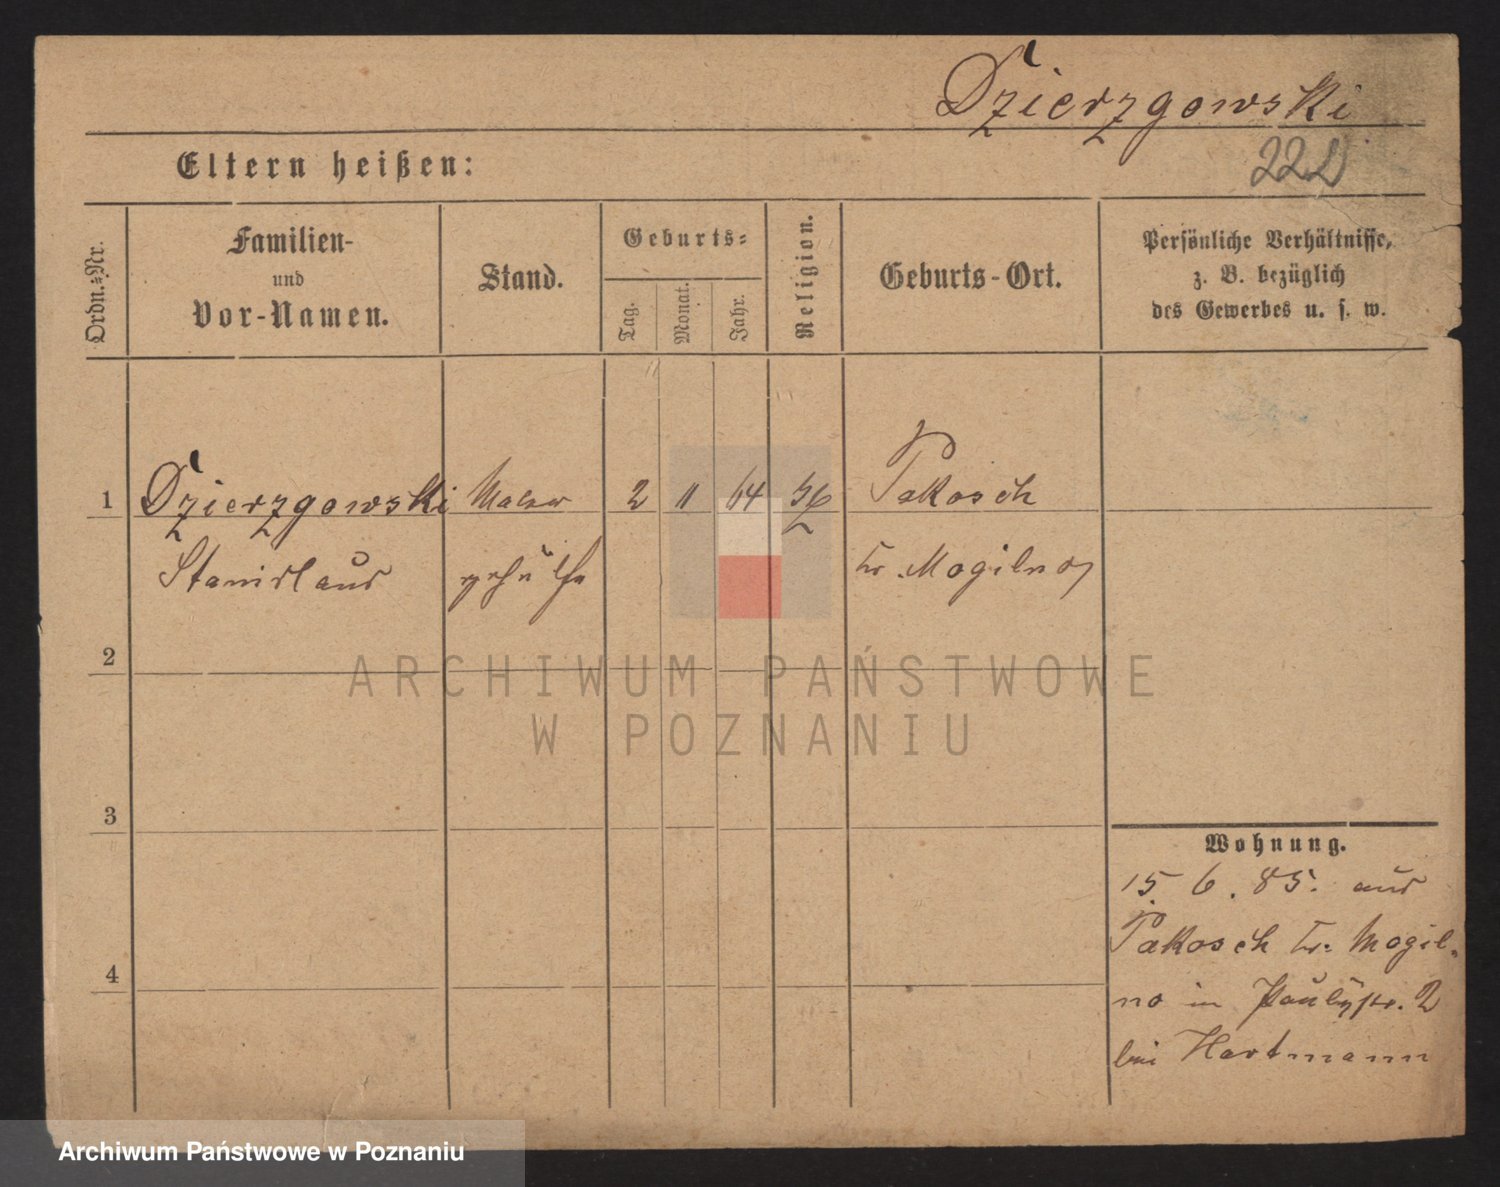 Dzierzgowski
22D
Eltern heißen:
Ordn.-Nr.
Familien-
und
Vor-Namen.
Stand.
Geburts-
Tag.
Monat.
Jahr.
Religion.
Geburts-Ort.
Persönliche Verhältnisse,
z. B. bezüglich
des Gewerbes u. s. w.
1 Dzierzgowski Maler 2 11 64 Pakosch
Stanislaus gehülfe Kr. Mogilno
2
ARCHIWUM PAŃSTWOWE
W POZNANIU
3
Wohnung.
15. 6. 85. aus
Pakosch Kr. Mogil-
4
no in Paulystr. 2
bei Hartmann
Archiwum Państwowe w Poznaniu